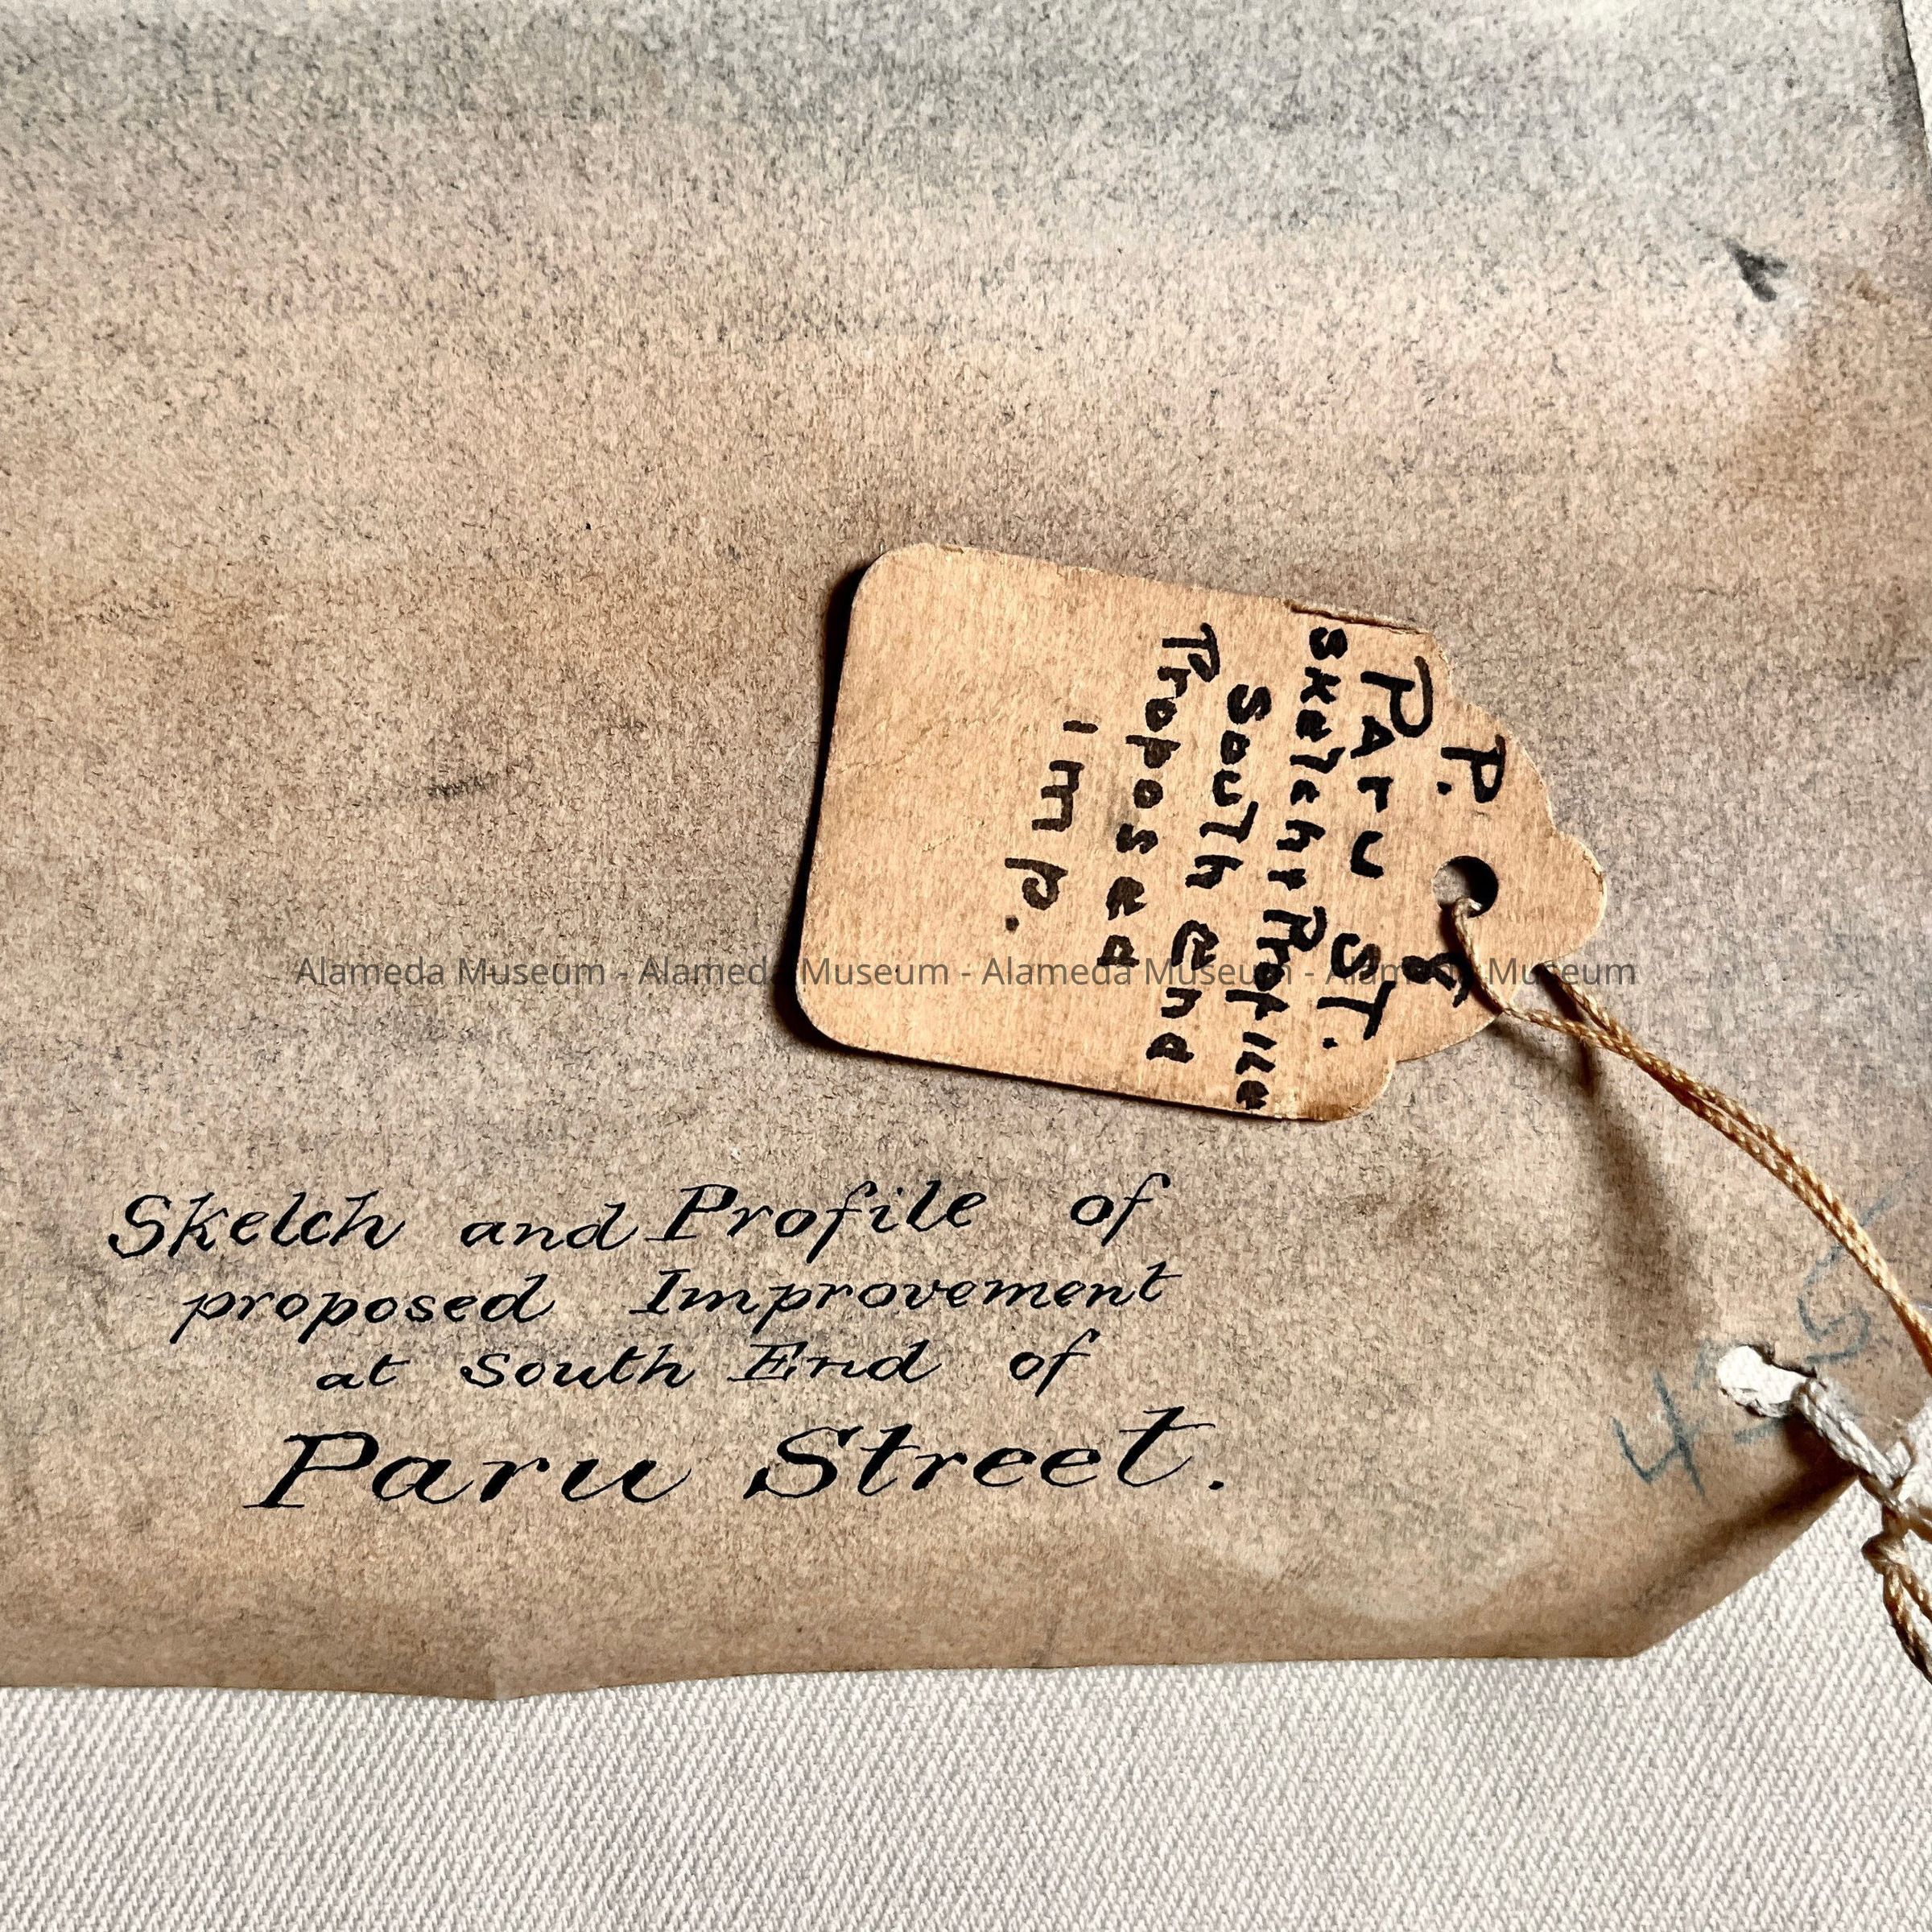 P. 8
Paru ST.
Sketch & Profile
South End
Proposed
Imp.
Alameda Museum - Alameda Museum - Alameda Museum - Alameda Museum
Sketch and Profile of
proposed Improvement
at South End of
Paru Street.